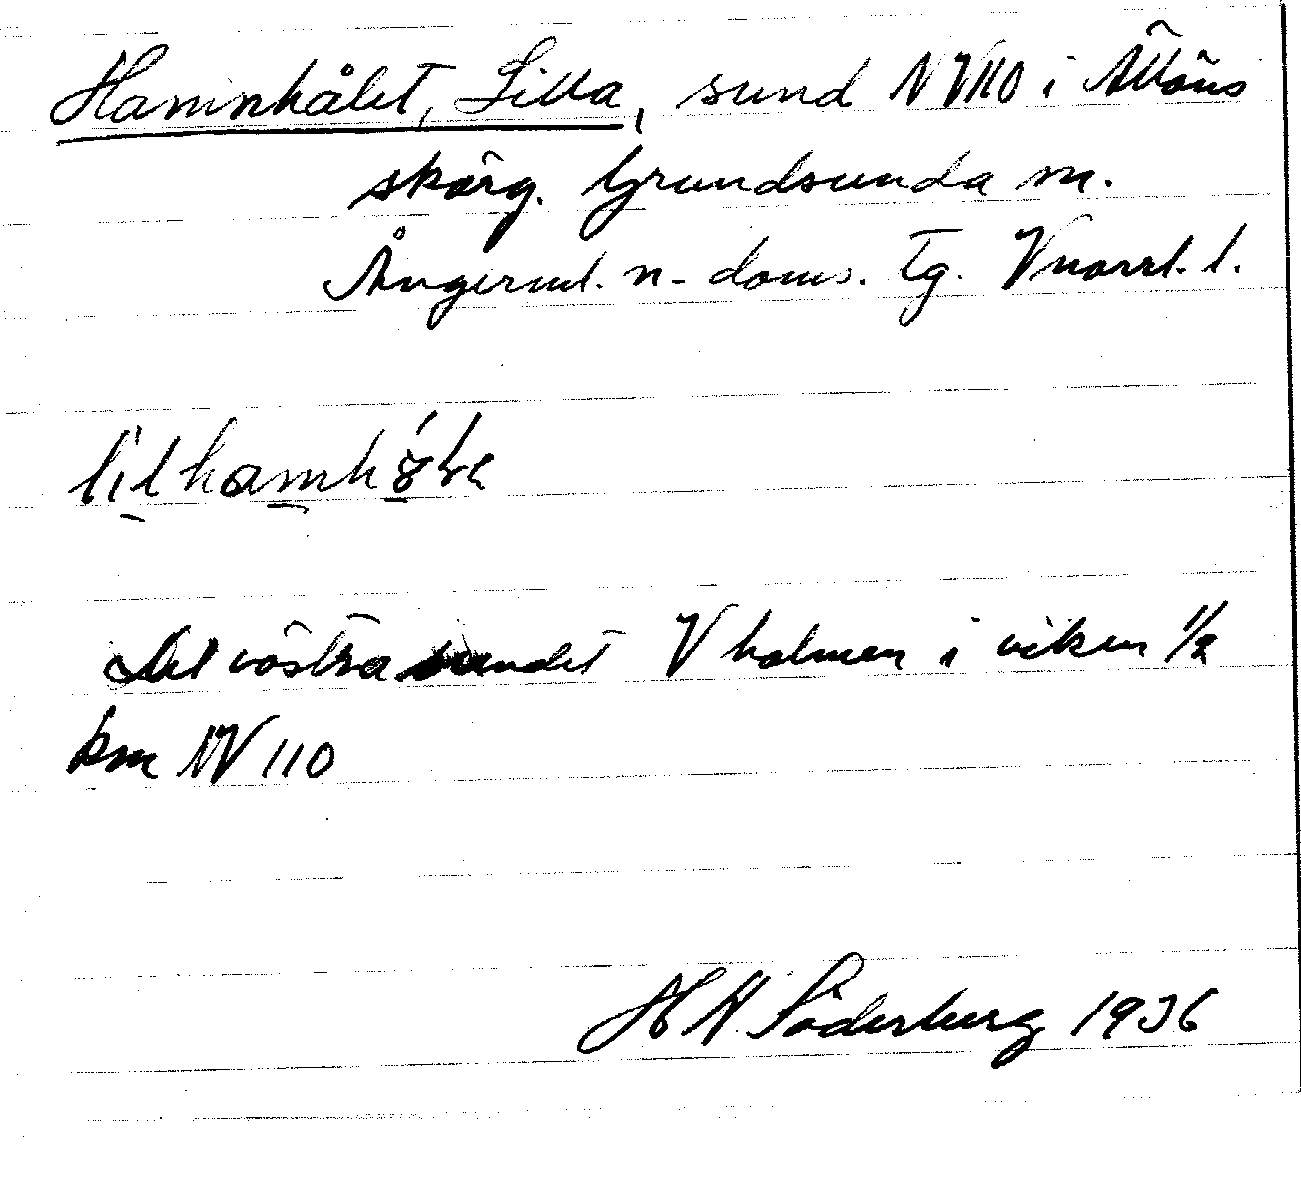 Hamnhålet, Lilla, sund NV110 i Ällöns
skärg. Grundsunda sn.
Ångerml. n. doms. Tg. Vnorrl. l.
Det västra sundet V holmen i viken 1/2
km NV 110
H H Söderberg 1936